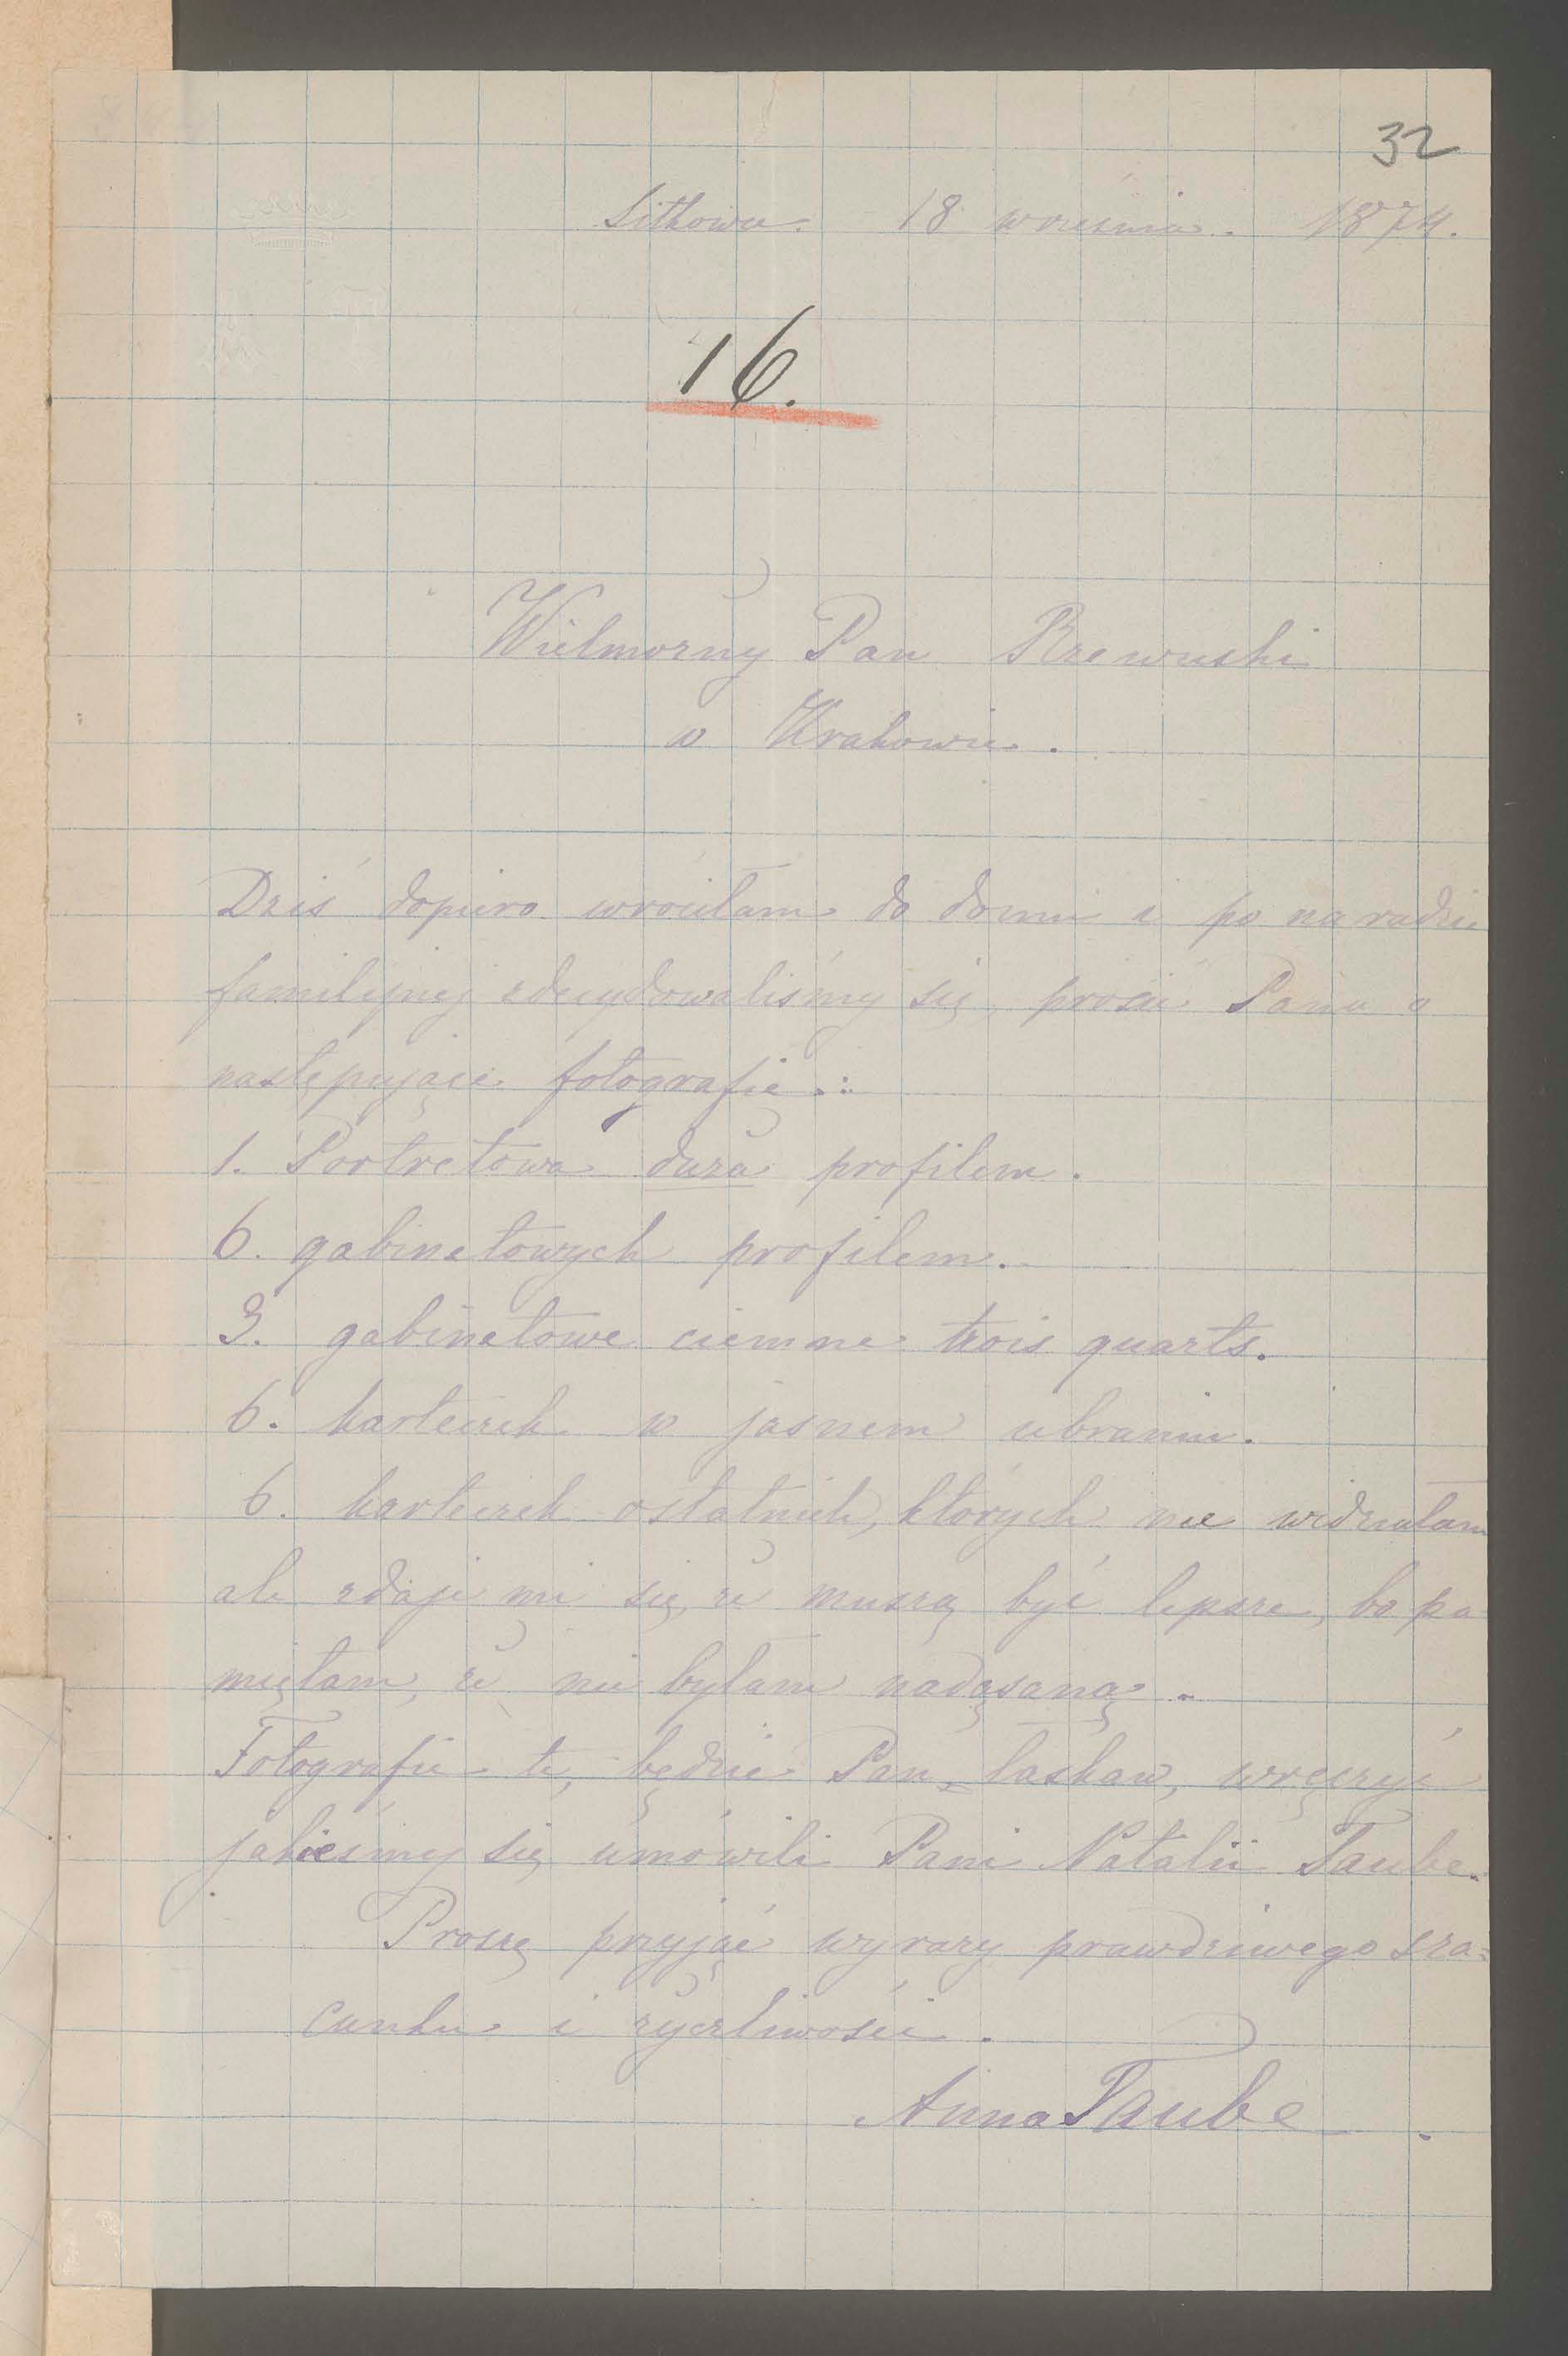 32
Sitkowce. 18 września. 1874.
16.
Wielmożny Pan Rzewuski
w Krakowie.
Dziś dopiero wróciłam do domu i po naradzie
familijnej zdecydowaliśmy się prosić Pana o
następujące fotografie:
1. Portretowa duża profilem.
6. gabinetowych profilem.
3. gabinetowe ciemne trois quarts.
6. karteczek w jasnem ubraniu.
6. karteczek ostatnich, których nie widziałam
ale zdaje mi się, że muszą być lepsze, bo pa-
miętam, że nie byłam nadąsaną.
Fotografie te, będzie Pan łaskaw, wręczyć
jakieśmy się umówili Pani Natalii Taube.
Proszę przyjąć wyrazy prawdziwego sza=
cunku i życzliwości.
Anna Taube.